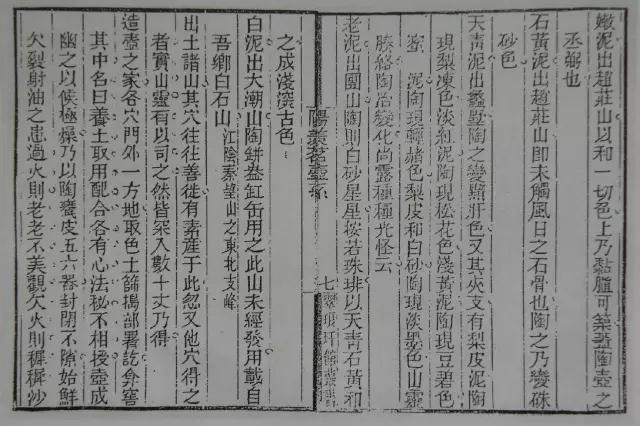 嫩泥出趙莊山以和一切色上乃黏脂可築蓋陶壺之
丞弼也
石黃泥出趙莊山即未觸風日之石骨也陶之乃變硃
砂色
天青泥出蠡墅陶之變黯肝色又其夾支有梨皮泥陶
現梨凍色淡紅泥陶現松花色淺黃泥陶現豆碧色
蜜泥陶現輕赭色梨皮和白砂陶現淡墨色山靈
腠絡陶冶變化尚露種種光怪云
老泥出團山陶則白砂星星按若珠琲以天青石黃和
陽羨茗壺系
七
粟香室叢書
之成淺深古色
白泥出大潮山陶缾盎缸缶用之此山未經發用載自
吾鄉白石山江陰秦望山之東北支峰
出土諸山其穴往往善徙有素產于此忽又他穴得之
者實山靈有以司之然皆深入數十丈乃得
造壺之家各穴門外一方地取色土篩搗部署訖弇窖
其中名曰養土取用配合各有心法秘不相授壺成
幽之以候極燥乃以陶甕庋五六器封閉不隙始鮮
欠裂射油之患過火則老老不美觀欠火則穉穉沙